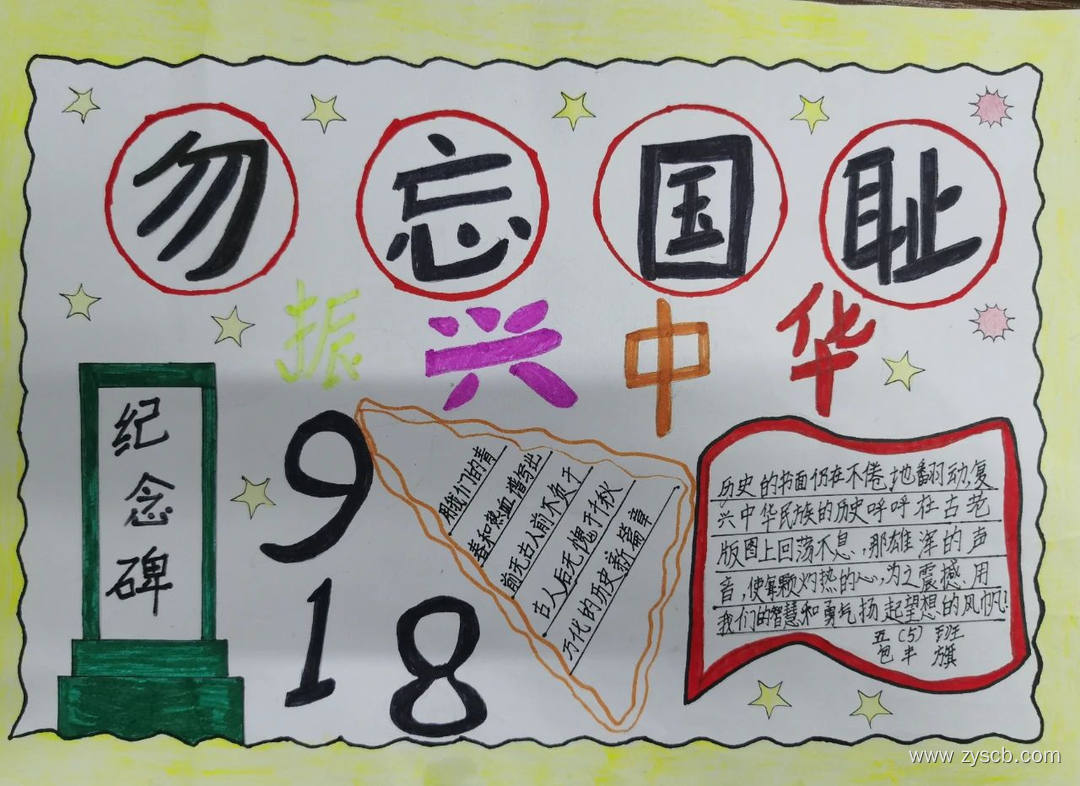 勿忘国耻
振兴中华
纪念碑
918
用我们的青
春和热血谱写出
前无古人前不负于
古人后无愧于千秋
万代的历史新篇章
历史的书面仍在不倦地翻动,复
兴中华民族的历史呼呼在古老
版图上回荡不息,那雄浑的声
音,使每颗灼热的心,为之震撼.用
我们的智慧和勇气扬起望想的风帆!
五(5)班
包半旗
www.zyscb.com